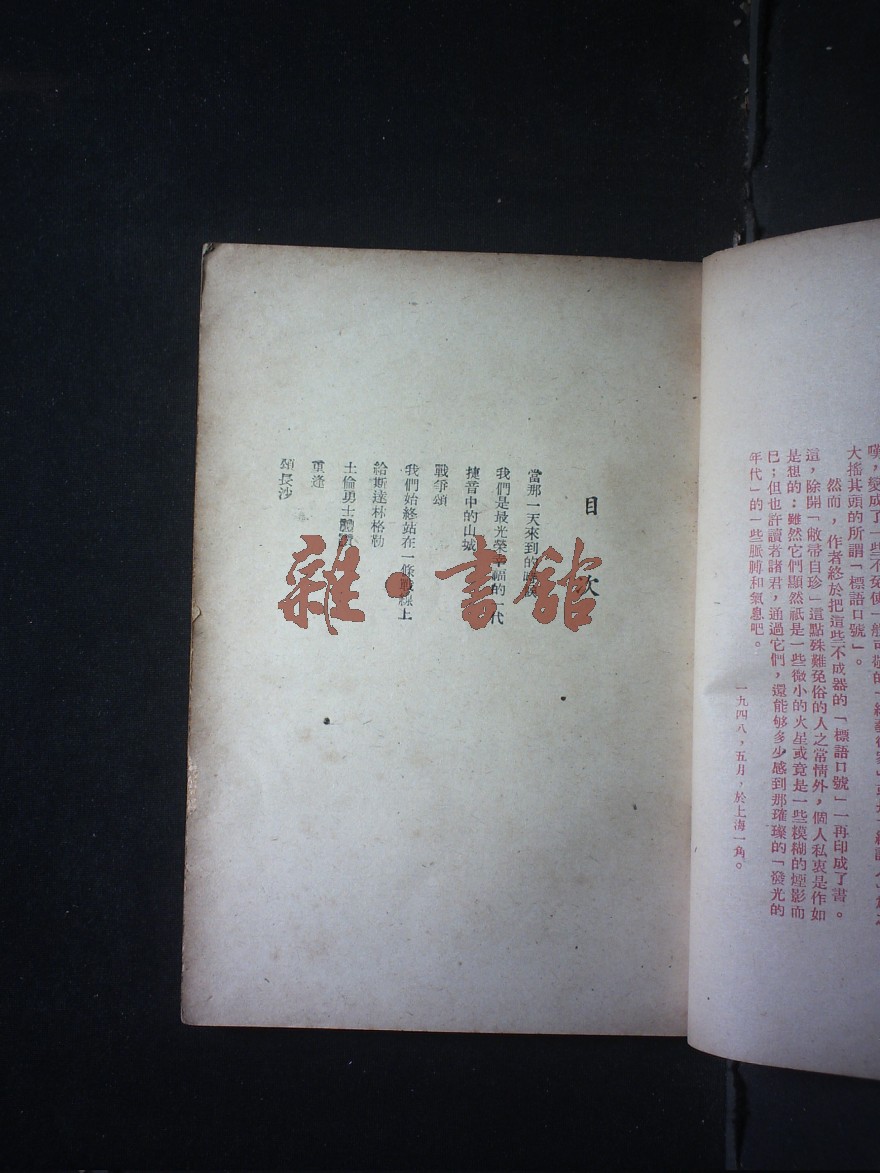 大搖其頭的所謂「標語口號」。
然而，作者終於把這些不成器的「標語口號」一再印成了書。
這，除開「敝帚自珍」這點殊難免俗的人之常情外，個人私衷是作如
是想的：雖然它們顯然祇是一些微小的火星或竟是一些模糊的煙影而
已；但也許讀者諸君，通過它們，還能够多少感到那璀璨的「發光的
年代」的一些脈膊和氣息吧。
一九四八，五月，於上海一角。
目次
當那一天來到的
我們是最光榮幸福的一代
捷音中的山城
戰爭頌
我們始終站在一條戰線上
給斯達林格勒
土倫勇士體
重逢
頌長沙
雜·書館